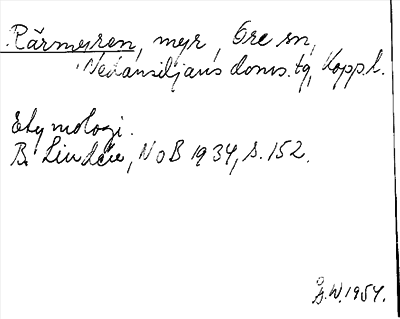 Pärmyren, myr, Ore sn,
Nedansiljans doms. tg, Kopp. l.
Etymologi.
B. Lindén, NoB 1934, s. 152.
G. W. 1954.